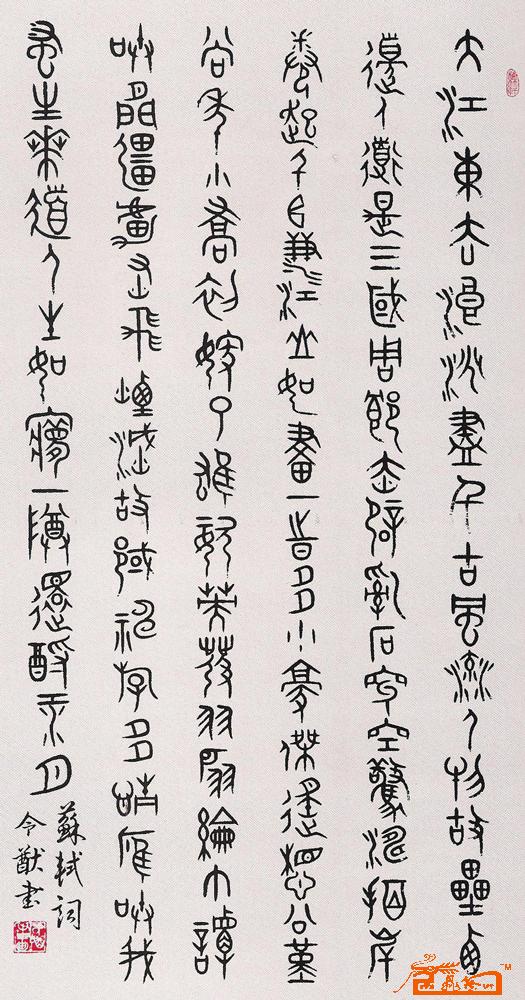 大江東去浪淘盡千古風流人物故壘西
邊人道是三國周郎赤壁亂石穿空驚濤拍岸
卷起千堆雪江山如畫一時多少豪傑遙想公瑾
當年小喬初嫁了雄姿英發羽扇綸巾談
笑間強虜灰飛煙滅故國神游多情應笑我
早生華髮人生如夢一尊還酹江月
蘇軾詞
令猷書